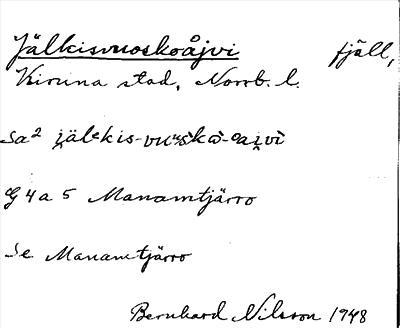 Jälkisvuoskoåjvi fjäll,
Kiruna stad, Norrb. l.
Sa2 jälekis-vuuskò-oaivì
G 4 a 5 Manamtjärro
Se Manamtjärro
Bernhard Nilsson 1948